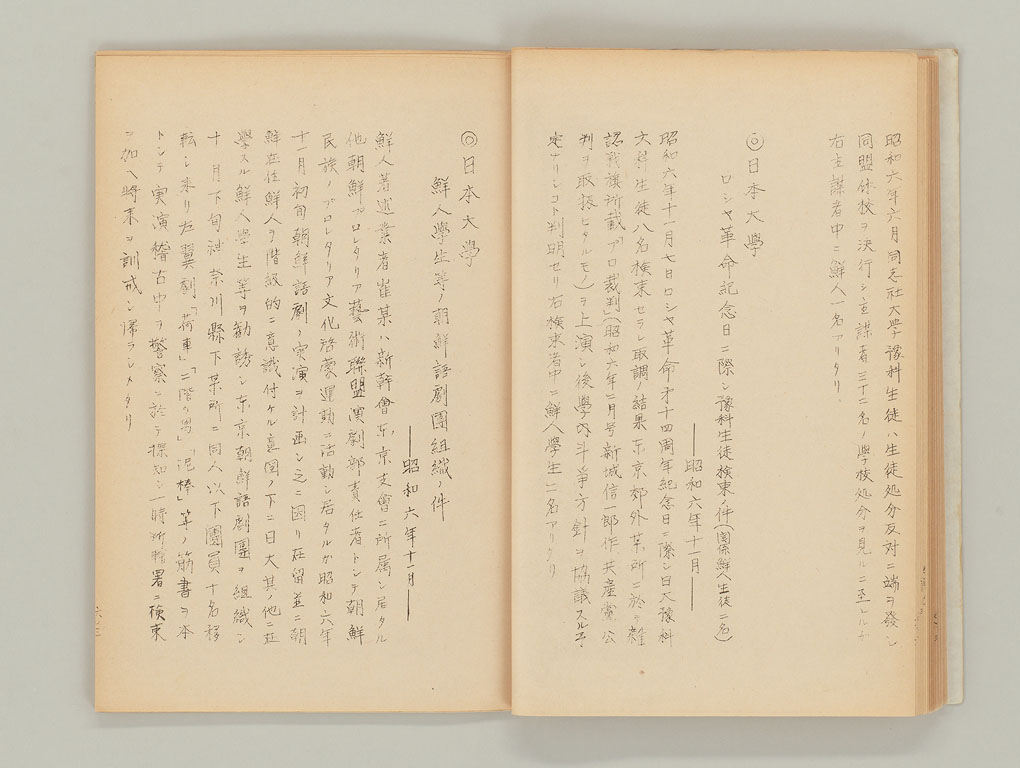 昭和六年六月同志社大學豫科生徒ハ生徒処分反対ニ端ヲ發シ
同盟休校ヲ決行シ主謀者三十二名ノ學校処分ヲ見ルニ至レルガ
右主謀者中ニ鮮人一名アリタリ
◎日本大學
ロシヤ革命紀念日ニ際シ豫科生徒検束ノ件(関係鮮人生徒二名)
―昭和六年十一月―
昭和六年十一月七日ロシヤ革命才十四周年紀念日ニ際シ日大豫科
文科生徒八名検束セラレ取調ノ結果東京郊外某所ニ於テ雑
誌戦旗所載「プロ裁判」(昭和六年二月号新城信一郎作共産黨公
判ヲ取扱ヒタルモノ)ヲ上演シ後學内斗爭方針ヲ協議スル予
定ナリシコト判明セリ右検束者中ニ鮮人學生二名アリタリ
◎日本大學
鮮人學生等ノ朝鮮語劇團組織ノ件
―昭和六年十一月―
鮮人著述業者崔某ハ新幹會東京支會ニ所属シ居タル
他朝鮮プロレタリア藝術聯盟演劇部責任者トシテ朝鮮
民族ノプロレタリア文化啓蒙運動ニ活動シ居タルガ昭和六年
十一月初旬朝鮮語劇ノ実演ヲ計画シ之ニ因リ在留並ニ朝
鮮在住鮮人ヲ階級的ニ意識付ケル意図ノ下ニ日大其ノ他ニ在
學スル鮮人學生等ヲ勧誘シ東京朝鮮語劇團ヲ組織シ
十月下旬神奈川縣下某所ニ同人以下團員十名移
転シ来リ左翼劇「荷車」「二階の男」「泥棒」等ノ筋書ヲ本
トシテ実演稽古中ヲ警察ニ於テ探知シ一時所轄署ニ検束
ヲ加ヘ將来ヲ訓戒シ帰ラシメタリ
六三